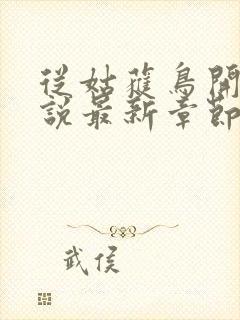 從姑蘿鳥開
說最新章節
武侯